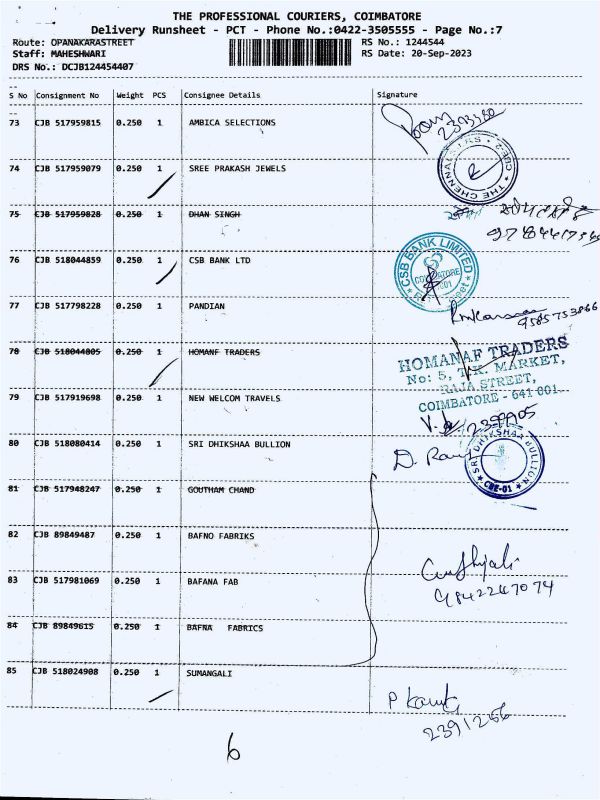 THE PROFESSIONAL COURIERS, COIMBATORE
Delivery Runsheet - PCT - Phone No.:0422-3505555 - Page No.:7
Route: OPANAKARASTREET RS No.: 1244544
Staff: MAHESHWARI RS Date: 20-Sep-2023
DRS No.: DCJB124454407
S No Consignment No Weight PCS Consignee Details Signature
73 CJB 517959815 0.250 1 AMBICA SELECTIONS
2393380
74 CJB 517959079 0.250 1 SREE PRAKASH JEWELS
75 CJB 517959828 0.250 1 DHAN SINGH
76 CJB 518044859 0.250 1 CSB BANK LTD
CSB BANK LIMITED
77 CJB 517798228 0.250 1 PANDIAN
9585753866
78 CJB 518044805 0.250 1 HOMANF TRADERS
HOMANAF TRADERS
No: 5, T.K. MARKET,
RAJA STREET,
COIMBATORE - 641 001
79 CJB 517919698 0.250 1 NEW WELCOM TRAVELS
80 CJB 518080414 0.250 1 SRI DHIKSHAA BULLION
SRI DHIKSHAA BULLION
CBE-01
81 CJB 517948247 0.250 1 GOUTHAM CHAND
82 CJB 89849487 0.250 1 BAFNO FABRIKS
83 CJB 517981069 0.250 1 BAFANA FAB
9842247074
84 CJB 89849615 0.250 1 BAFNA FABRICS
85 CJB 518024908 0.250 1 SUMANGALI
2391266
6